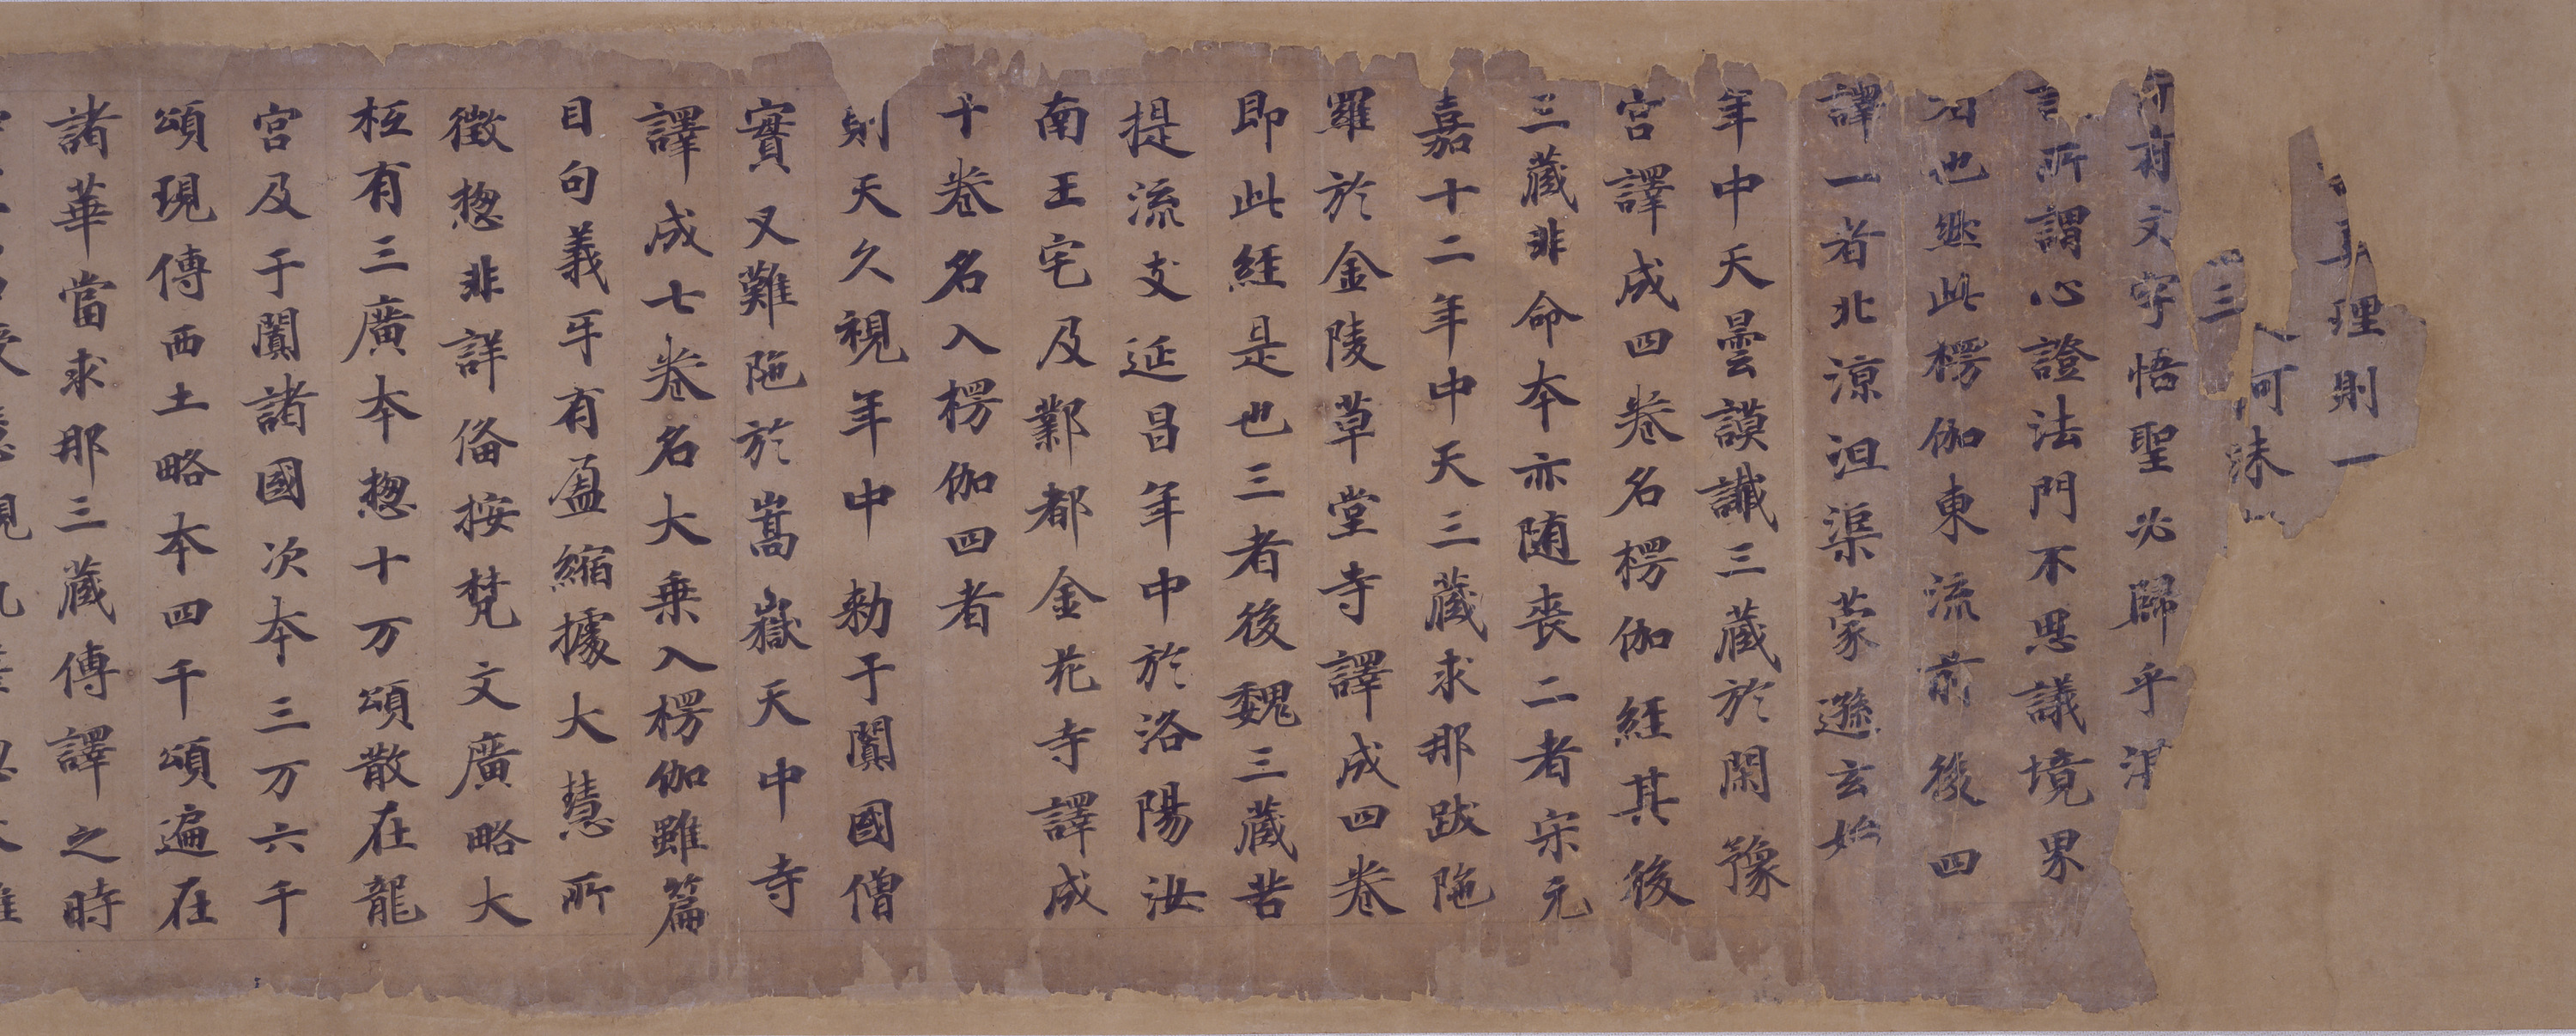 理則一
可
三 昧
有文字悟聖必歸乎
所謂心證法門不思議境界
也斯此楞伽東流前後四
譯一者北涼沮渠蒙遜玄始
年中天曇謨讖三蔵於閑豫
宮譯成四卷名楞伽經其後
三蔵非命本亦随喪二者宋元
嘉十二年中天三蔵求那跋陁
羅於金陵草堂寺譯成四卷
即此経是也三者後魏三蔵菩
提流支延昌年中於洛陽汝
南王宅及鄴都金花寺譯成
十卷名入楞伽四者
則天久視年中勅于闐國僧
實叉難陁於嵩嶽天中寺
譯成七卷名大乗入楞伽雖篇
目句義牙有盈縮據大慧所
徵惣非詳俻按梵文廣略大
枑有三廣本惣十万頌散在龍
宮及于闐諸國次本三万六千
頌現傳西土略本四千頌遍在
諸華當求那三蔵傳譯之時